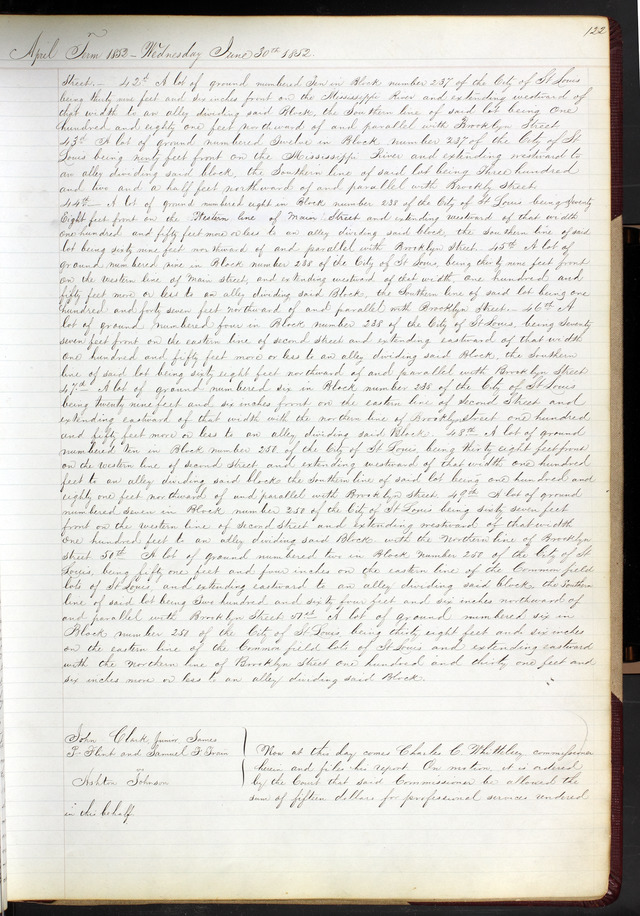 122
April Term 1852 - Wednesday June 30th 1852.
Street. - 42d A lot of ground numbered Ten in Block number 237 of the City of St Louis
being thirty nine feet and six inches front on the Mississippi River and extending westward of
that width to an alley dividing said Block, the Southern line of said lot being One
hundred and eighty one feet northward of and parallel with Brooklyn Street
43d A lot of ground numbered Twelve in Block number 237 of the City of St
Louis being ninty feet front on the Mississippi River and extending westward to
an alley dividing said block, the Southern line of said lot being Three hundred
and two and a half feet northward of and parallel with Brookly Street
44th - A lot of ground numbered eight in Block number 238 of the City of St Louis being Seventy
Eight feet front on the Western line of Main Street and extending westward of that width
one hundred and fifty feet more or less to an alley dividing said block, the Southern line of said
lot being sixty nine feet northward of and parallel with Brooklyn Street 45th A lot of
ground numbered nine in Block number 238 of the City of St Louis, being thirty nine feet front
on the Western line of Main street, and extending westward of that width, one hundred and
fifty feet more or less to an alley dividing said Block, the Southern line of said lot being one
hundred and forty seven feet northward of and parallel with Brooklyn Street. - 46th A
lot of ground numbered four in Block number 238 of the City of St Louis, being Seventy
seven feet front on the eastern line of second street and extending eastward of that width
one hundred and fifty feet more or less to an alley dividing said Block, the Southern
line of said lot being sixty eight feet northward of and parallel with Brooklyn Street
47th - A lot of ground numbered six in Block number 238 of the City of St Louis
being twenty nine feet and six inches front on the eastern line of Second Street and
extending eastward of that width with the northern line of Brooklyn Street one hundred
and fifty feet more or less to an alley dividing said Block. 48th A lot of ground
numbered Ten in Block number 258 of the City of St Louis, being thirty eight feet front
on the Western line of second Street, and extending westward of that width one hundred
feet to an alley dividing said block the Southern line of said lot being one hundred and
eighty one feet northward of and parallel with Brooklyn street 49th A lot of ground
numbered Seven in Block number 258 of the City of St Louis being sixty seven feet
front on the western line of Second Street and extending westward of that width
One hundred feet to an alley dividing said Block with the Northern line of Brooklyn
street 50th A lot of ground numbered two in Block number 258 of the City of St
Louis, being fifty one feet and four inches on the eastern line of the Common field
lots of St Louis, and extending eastward to an alley dividing said Block the Southern
line of said lot being Two hundred and sixty four feet and six inches northward of
and parallel with Brooklyn Street 51st A lot of ground numbered six in
Block number 258 of the City of St Louis, being thirty eight feet and six inches
on the eastern line of the Common field lots of St Louis and extending eastward
with the Northern line of Brooklyn Street one hundred and thirty one feet and
six inches more or less to an alley dividing said Block.
John Clark, Junior James
P. Flint and Samuel F. Train
Ashton Johnson
Now at this day comes Charles C. Whittlsey commissioner
herein and files his report. On motion, it is ordered
by the Court that said Commissioner be allowed the
sum of fifteen dollars for professional services rendered
in this behalf.